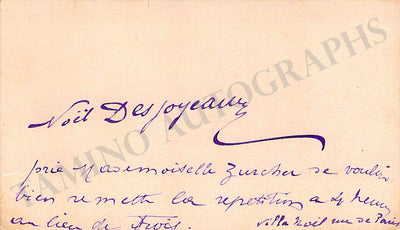 Noël Desjoyeaux
prie Mademoiselle Zurcher de vouloir
bien remettre la repetition a 4 heures
au lieu de trois. villa Noël rue de Paris
TAMINO AUTOGRAPHS